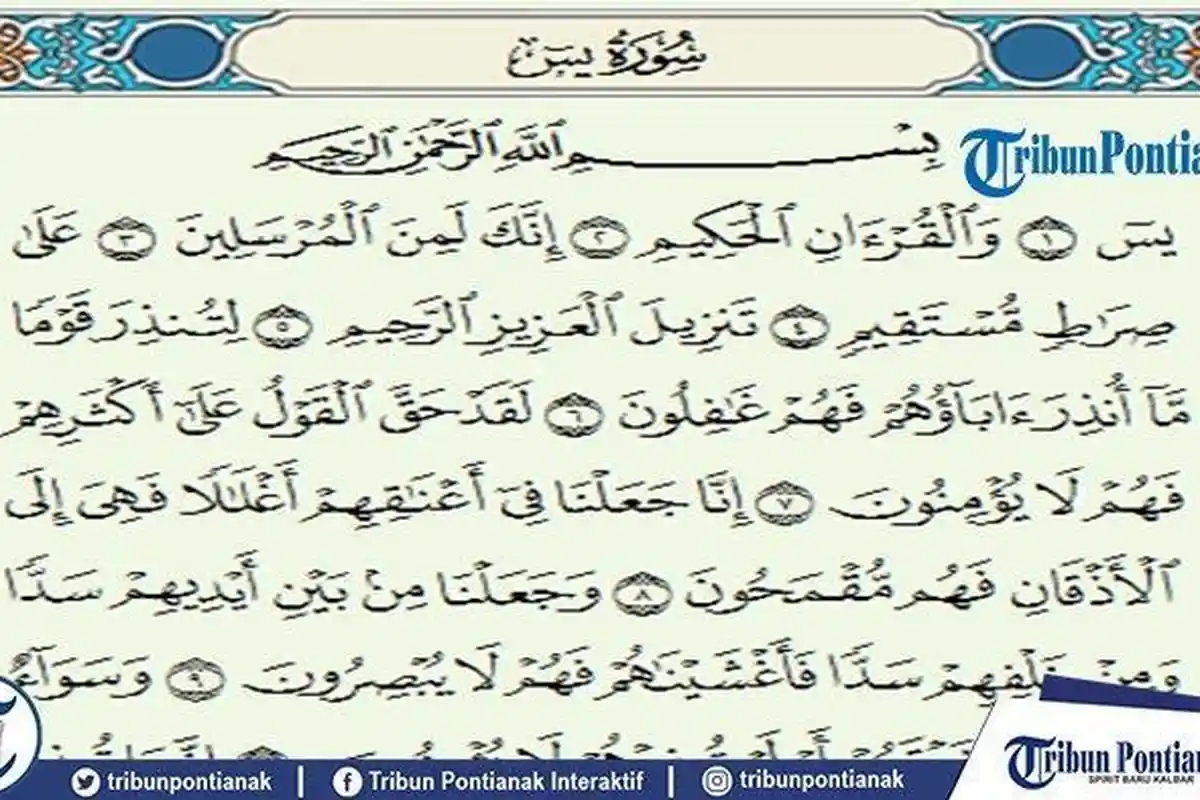 سُورَةُ يسٓ
بِسْمِ ٱللَّهِ ٱلرَّحْمَٰنِ ٱلرَّحِيمِ
TribunPontia
يسٓ ١ وَٱلْقُرْءَانِ ٱلْحَكِيمِ ٢ إِنَّكَ لَمِنَ ٱلْمُرْسَلِينَ ٣ عَلَىٰ
صِرَٰطٍ مُّسْتَقِيمٍ ٤ تَنزِيلَ ٱلْعَزِيزِ ٱلرَّحِيمِ ٥ لِتُنذِرَ قَوْمًا
مَّآ أُنذِرَ ءَابَآؤُهُمْ فَهُمْ غَٰفِلُونَ ٦ لَقَدْ حَقَّ ٱلْقَوْلُ عَلَىٰٓ أَكْثَرِهِمْ
فَهُمْ لَا يُؤْمِنُونَ ٧ إِنَّا جَعَلْنَا فِىٓ أَعْنَٰقِهِمْ أَغْلَٰلًا فَهِىَ إِلَى
ٱلْأَذْقَانِ فَهُم مُّقْمَحُونَ ٨ وَجَعَلْنَا مِنۢ بَيْنِ أَيْدِيهِمْ سَدًّا
وَمِنْ خَلْفِهِمْ سَدًّا فَأَغْشَيْنَٰهُمْ فَهُمْ لَا يُبْصِرُونَ ٩ وَسَوَآءٌ
tribunpontianak | Tribun Pontianak Interaktif | tribunpontianak
Tribun Pontianak
SPIRIT BARU KALBAR